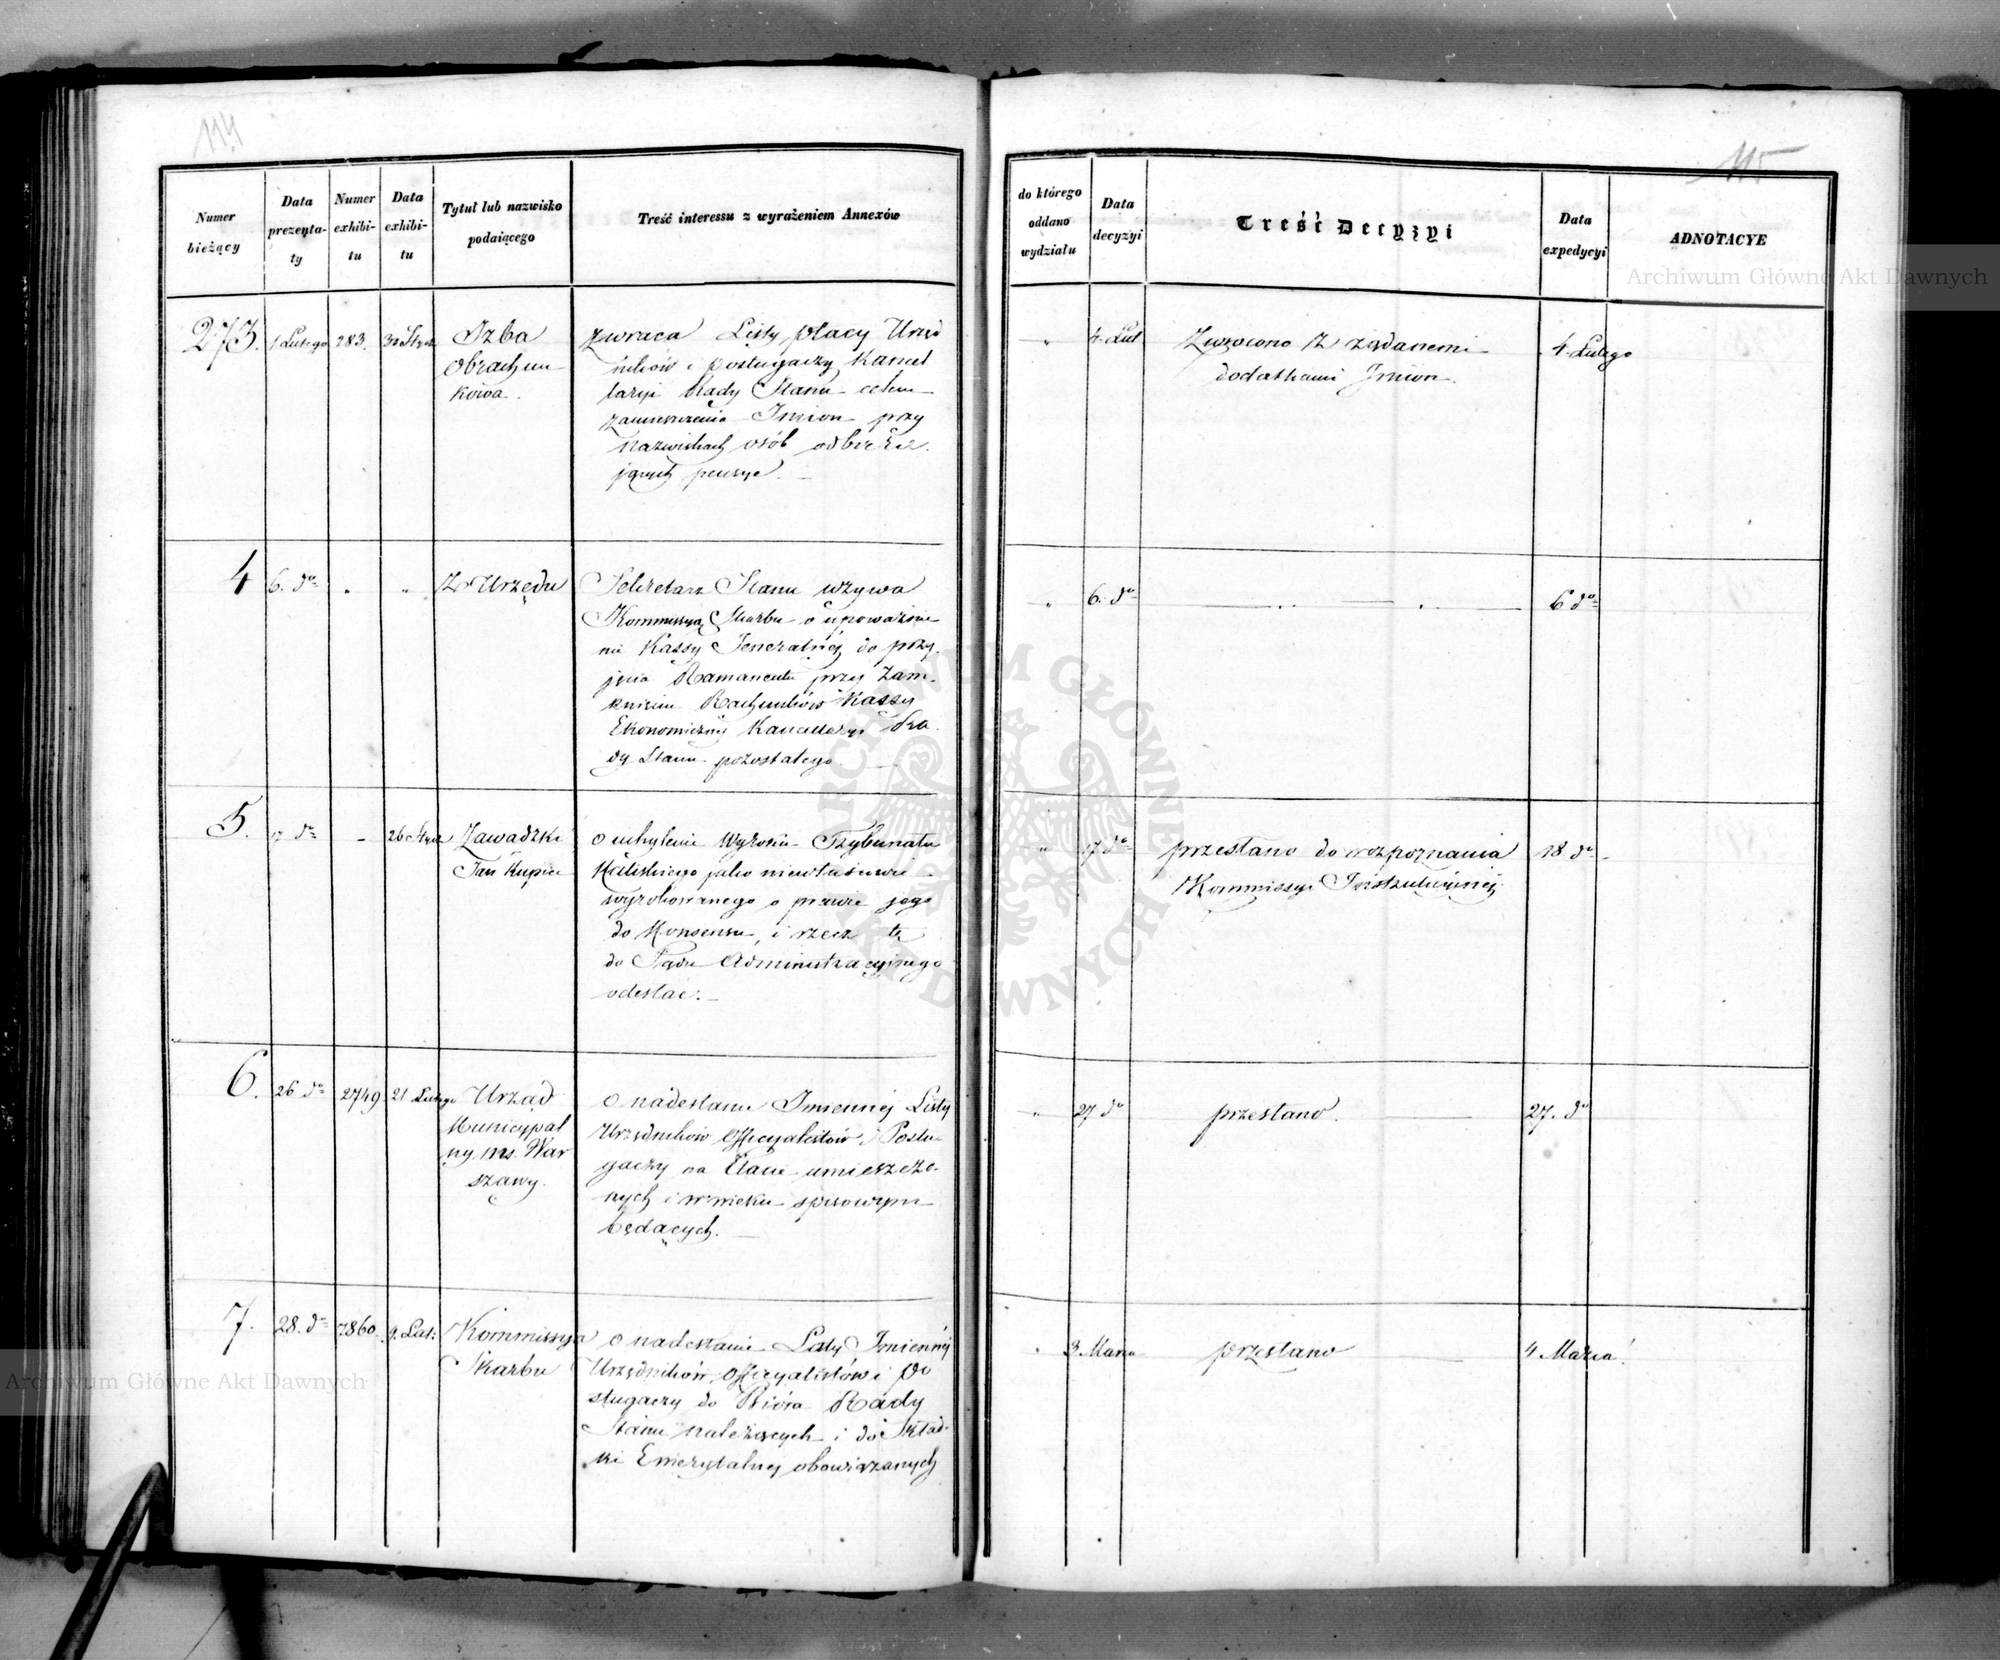 114
Numer
bieżący
Data
prezenta-
ty
Numer
exhibi-
tu
Data
exhibi-
tu
Tytuł lub nazwisko
podaiącego
Treść interessu z wyrażeniem Annexów
273.
1 Lutego
283.
30 Stycz
Izba
Obrachun
kowa.
zwraca Listy płacy Urzęd
ników i posługaczy Kancel
laryi Rady Stanu celem
zamieszczenia Imion przy
nazwiskach osób odbiera
jących pensye. —
4
6. do
"
"
Z Urzędu
Sekretarz Stanu wzywa
Kommissyą Skarbu o upoważnie
nie Kassy Jeneralnéj do przy-
jęcia Ramanentu przy Zam-
knięciu Rachunków Kassy
Ekonomicznej Kancellaryi Ra-
dy Stanu pozostałego. —
5.
17 do
-
26 Stycz
Zawadzki
Jan Kupiec
o uchylenie Wyroku Trybunału
Kaliskiego jako niewłaściwie
wyrokowanego o prawie jego
do Konsensu, i rzecz tę
do Sądu Administracyjnego
odesłać. —
6.
26 do
2749
21 Lutego
Urząd
Municypal
ny ms. War
szawy.
o nadesłanie Imiennéj Listy
Urzędników Officyalistów i Posłu-
gaczy na Etacie umieszczo-
nych i w wieku spisowym
będących. —
7.
28. do
7860.
9. Lut:
Kommissya
Skarbu
o nadesłanie Listy Imiennéj
Urzędników, Officyalistów i Po
sługaczy do Bióra Rady
Stanu należących i do Skład-
ki Emerytalnej obowiązanych
115
do którego
oddano
wydziału
Data
decyzyi
Treść Decyzyi
Data
expedycyi
ADNOTACYE
"
4. Lut
Zwrócono z żądanemi
dodatkami Imion.
4 Lutego
"
6. do
6 do
"
17 do
przesłano do rozpoznania
Kommissyi Instrukcyjnéj.
18 do
"
27 do
przesłano.
27. do
"
3. Marca
przesłano
4 Marca
Archiwum Główne Akt Dawnych
Archiwum Główne Akt Dawnych
ARCHIWUM GŁÓWNE AKT DAWNYCH